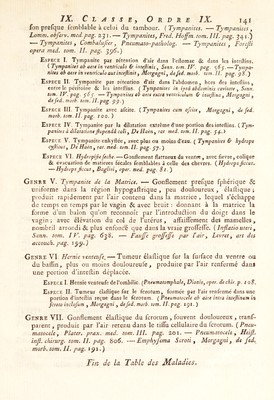 IX. CLASSE, ORDRE IX. 141
son presque semblable à celui du tambour. (Tympanites. — Tympanites,
Lomm. observ. med. pag. 231. — Tympanites, Fred. Hoffm. tom. III. pag. 341.)
— Tympanites, Combalusier, Pneumato-patholog. — Tympanites, Foresti
opera med. tom. II. pag. 396.).
ESPECE I. Tympanite par rétention d'air dans l'estomac & dans les intestins.
(Tympanites ab aere in ventriculo & intestinis, Senn. tom. IV. pag. 565. — Tympanites
ab aere in ventriculo aut intestinis, Morgagni, de sed. morb. tom. II. pag. 98.)
ESPECE II. Tympanite par rétention d'air dans l'abdomen, hors des intestins,
entre le péritoine & les intestins. (Tympanites in ipsâ abdominis caritate, Senn.
tom. IV. pag. 565. — Tympanites ab aere extra ventriculum & intestina, Morgagni,
de sed. morb. tom. II. pag. 99.)
ESPECE III. Tympanite avec ascite. (Tympanites cum ascite, Morgagni, de sed.
tom. II. pag. 100.)
ESPECE IV. Tympanite par la dilatation extrême d'une portion des intestins. (Tympanites
à dilatatione stupendâ coli, De Haën, rat. med. tom. II. pag. 54.)
ESPECE V. Tympanite enkystée, avec plus ou moins d'eau. (Tympanites & hydrops
cysticus, De Haën, rat. med. tom. II. pag. 57.)
ESPECE VI. Hydropisie seche — Gonflement flatueux du ventre, avec fievre, colique
& évacuation de matieres fécales semblables à celle des chevres. (Hydrops siccus.
— Hydrops siccus, Baglivi, oper. med. pag. 81.)
GENRE V. Tympanite de la Matrice. — Gonflement presque sphérique &
uniforme dans la région hypogastrique, peu douloureux, élastique;
produit rapidement par l'air contenu dans la matrice, lequel s'échappe
de temps en temps par le vagin & avec bruit: donnant à la matrice la
forme d'un balon qu'on reconnoît par l'introduction du doigt dans le
vagin; avec élévation du col de l'utérus, affaissement des mamelles,
nombril arrondi & plus enfoncé que dans la vraie grossesse. (Inflatio uteri,
Senn. tom. IV. pag. 638. — Fausse grossesse par l'air, Levret, art des
accouch. pag. 199.)
GENRE VI. Hernie venteuse. — Tumeur élastique sur la surface du ventre ou
du bassin, plus ou moins douloureuse, produite par l'air renfermé dans
une portion d'intestin déplacée.
ESPECE I. Hernie venteuse de l'ombilic. (Pneumatomphale, Dionis, oper. de chir. p. 108.
ESPECE II. Tumeur élastique sur le scrotum, formée par l'air renfermé dans une
portion d'intestin reçue dans le scrotum. (Pneumatocele ab aere intra intestinum in
scroto inclusum, Morgagni, de sed. morb. tom. II. pag. 191.)
GENRE VII. Gonflement élastique du scrotum, souvent douloureux, transparent,
produit par l'air retenu dans le tissu cellulaire du scrotum. (Pneumatocele,
Plater. prax. med. tom. III. pag. 201. — Pneumatocele, Heist.
inst. chirurg. tom. II. pag. 806. — Emphysema Scroti, Morgagni, de sed.
morb. tom. II. pag. 191.)
Fin de la Table des Maladies.